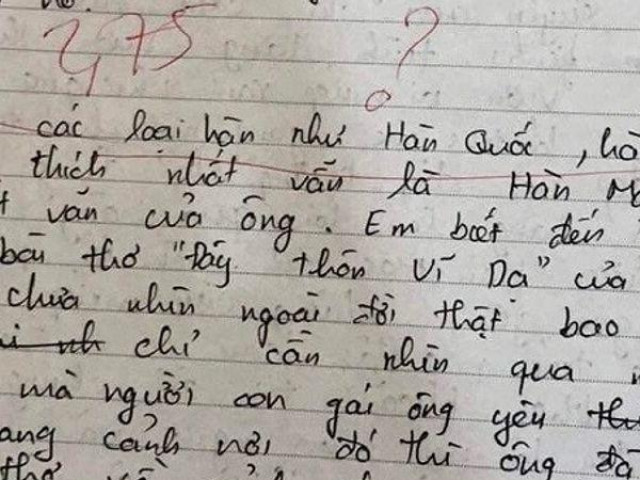 2,75 ?
các loại hận như Hàn Quốc, hà
thích nhất vẫn là Hàn M
văn của ông. Em biết đến
bài thơ "Đây thôn Vĩ Dạ" của
chưa nhìn ngoài đời thật bao
chỉ cần nhìn qua
mà người con gái ông yêu th
ang cảnh nơi đó thì ông đã
thơ